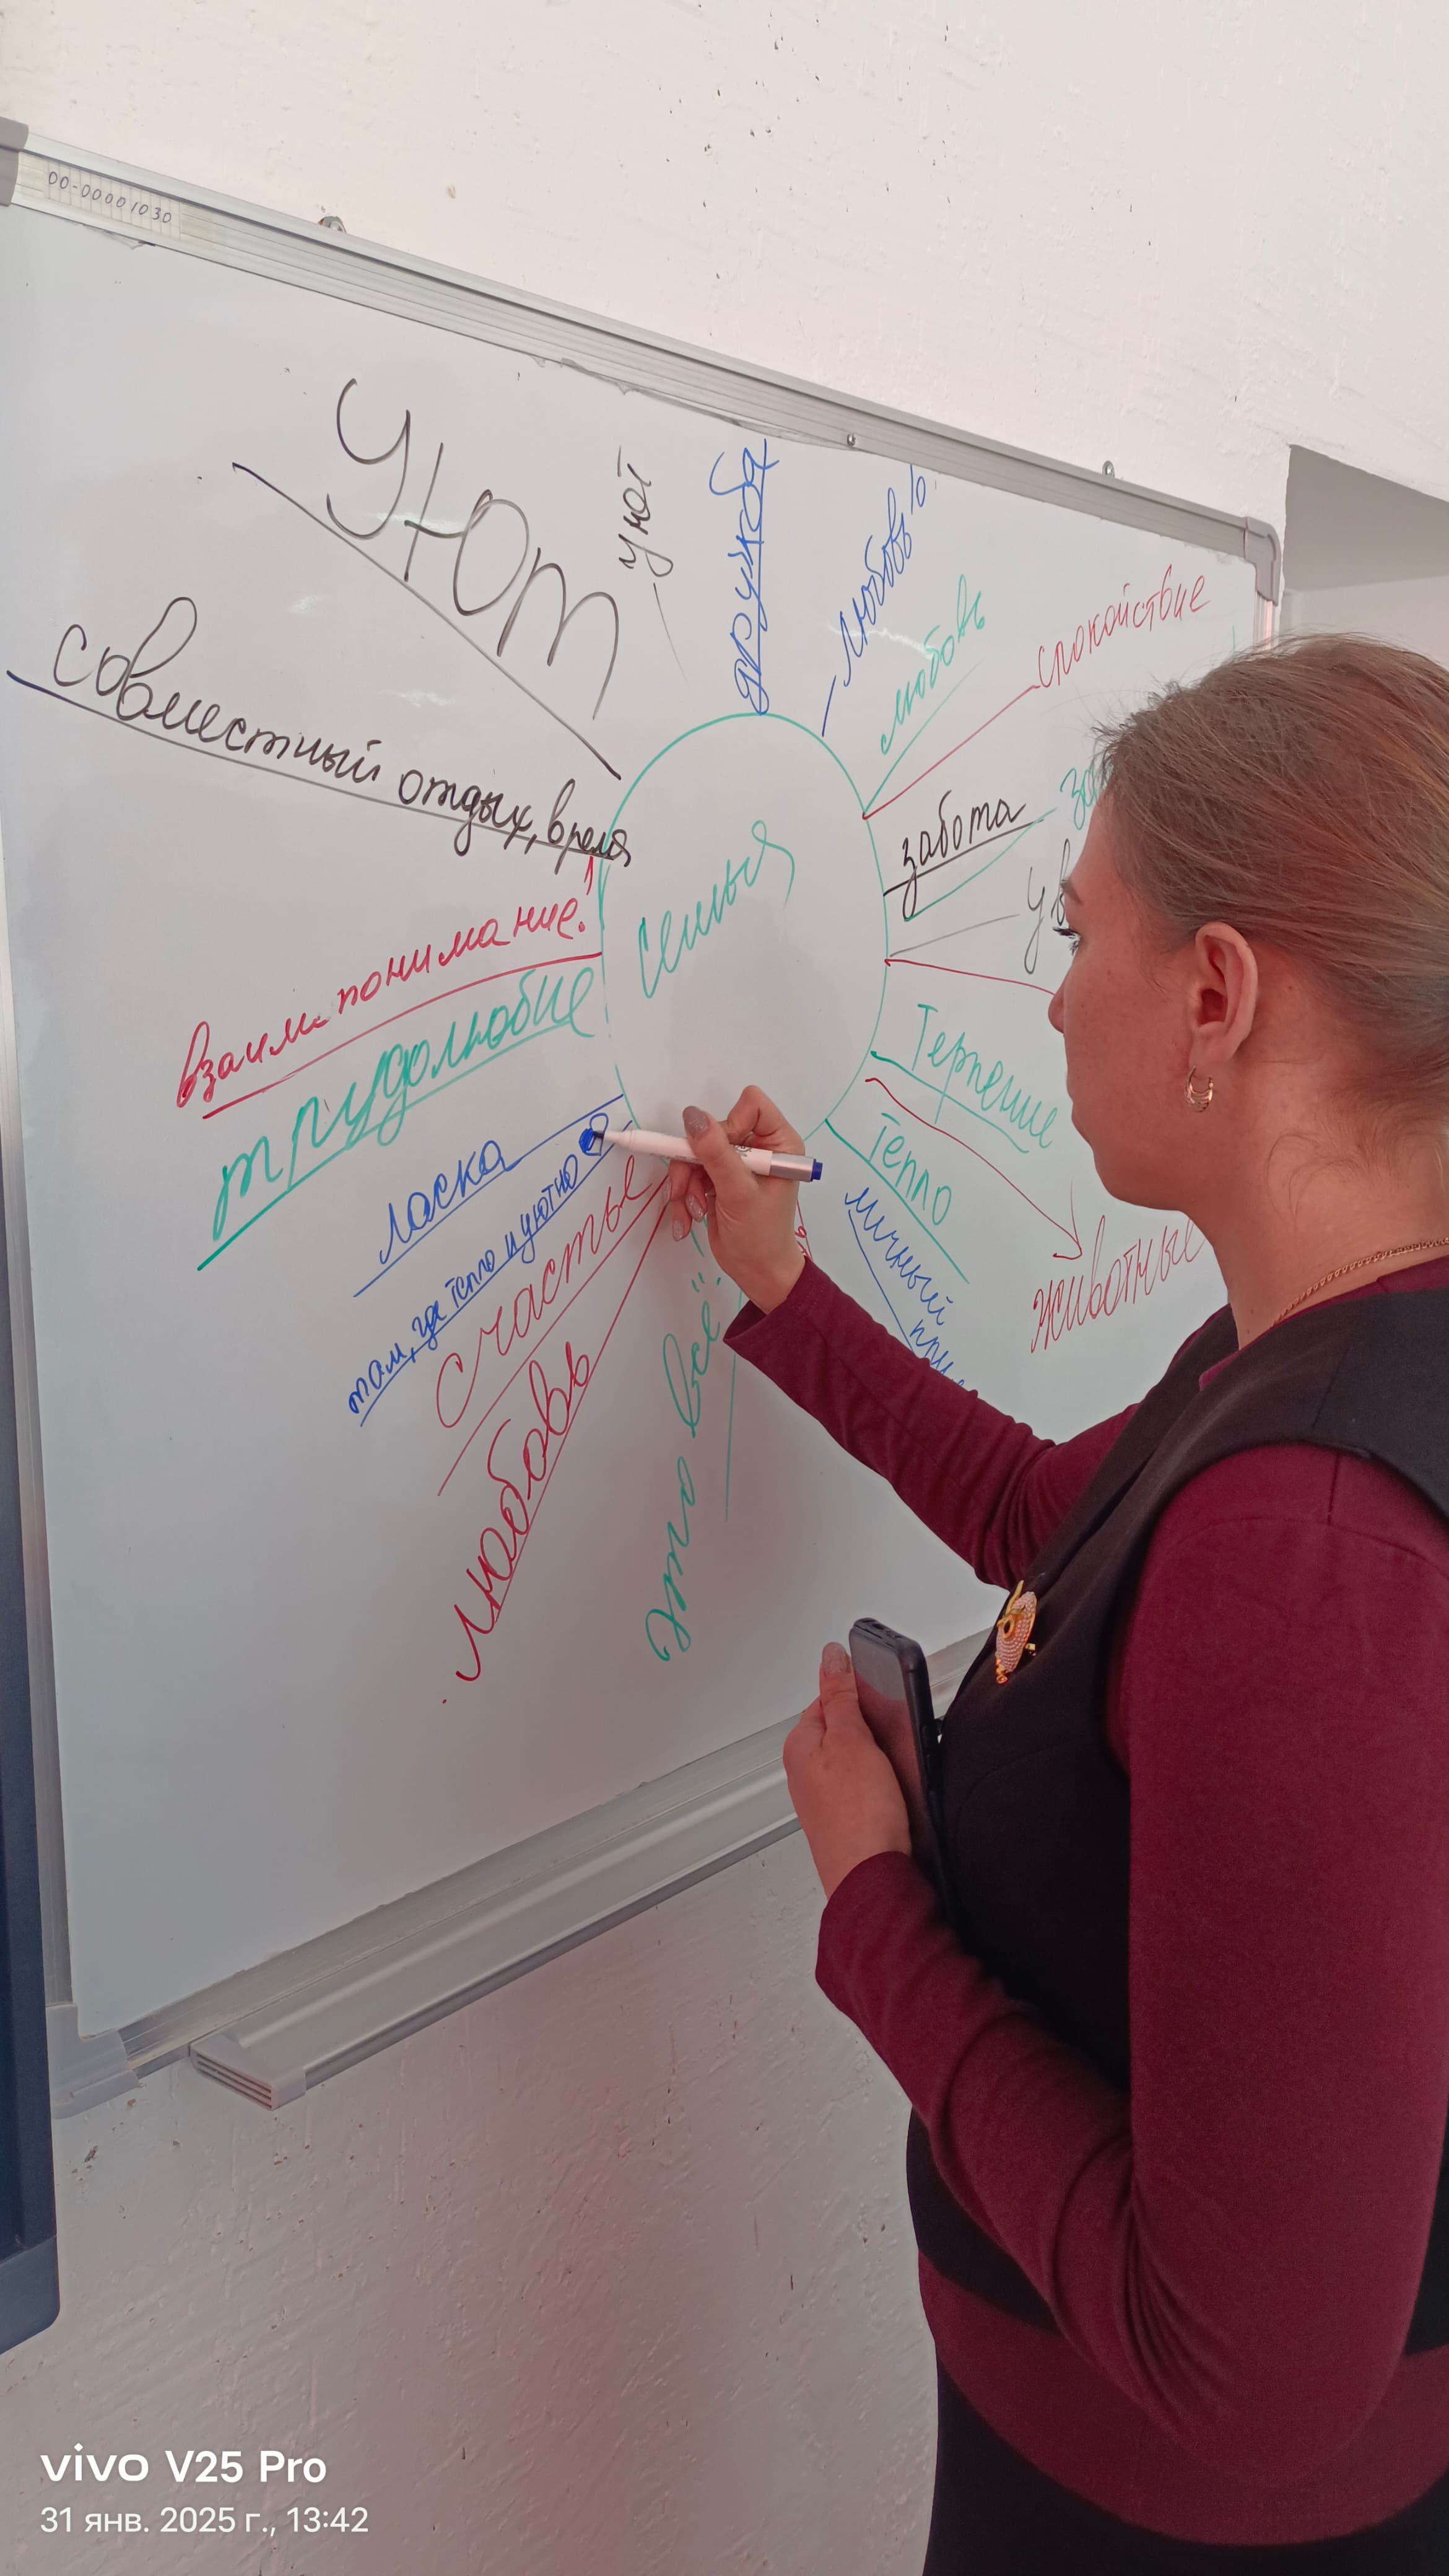 00-00001030
уют
уют
дружба
любовь!
любовь
спокойствие
совместный отдых, время
забота
взаимопонимание!
семья
трудолюбие
Терпение
тепло
ласка
там, где тепло и уютно
личный
животные
счастье
любовь
это всё"
vivo V25 Pro
31 янв. 2025 г., 13:42